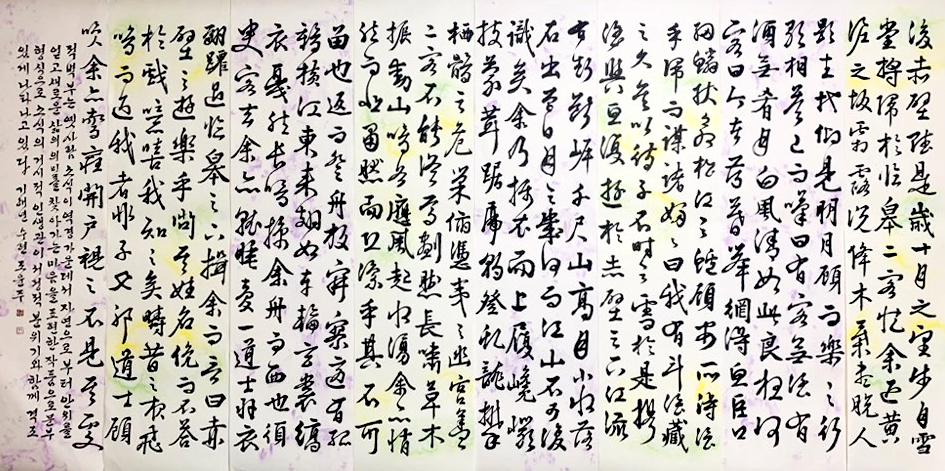 後赤壁賦是歲十月之望步自雪
堂將歸於臨皋二客從余過黃
泥之坂霜露既降木葉盡脫人
影在地仰見明月顧而樂之行
歌相答已而嘆曰有客無酒有
酒無肴月白風清如此良夜何
客曰今者薄暮舉網得魚巨口
細鱗狀如松江之鱸顧安所得酒
乎歸而謀諸婦々曰我有斗酒藏
之久矣以待子不時之需於是攜
酒與魚復遊於赤壁之下江流
有聲斷岸千尺山高月小水落
石出曾日月之幾何而江山不可復
識矣余乃攝衣而上履巉巖
披蒙茸踞虎豹登虬龍攀
栖鶻之危巢俯馮夷之幽宮蓋
二客不能從焉劃然長嘯草木
振動山鳴谷應風起水湧余亦悄
然而悲肅然而恐凜乎其不可
留也返而登舟放寂寥適有孤
鶴橫江東來翅如車輪玄裳縞
衣戛然長鳴掠余舟而西也須
臾客去余亦就睡夢一道士羽衣
翩躚過臨皋之下揖余而言曰赤
壁之遊樂乎問其姓名俛而不答
於戲噫嘻我知之矣疇昔之夜飛
鳴而過我者非子又邪道士顧
笑余亦驚寤開戶視之不見其處
적벽부는 옛사람 소식이 역경가운데서 자연으로부터 안위를
얻고 새로운 삶의 의미를 찾아가는 마음을 표현한 작품으로
형식으로 소식의 거시적 인생관이 서정적 분위기와 함께 격조
있게 나타나고 있다 기해년 수현